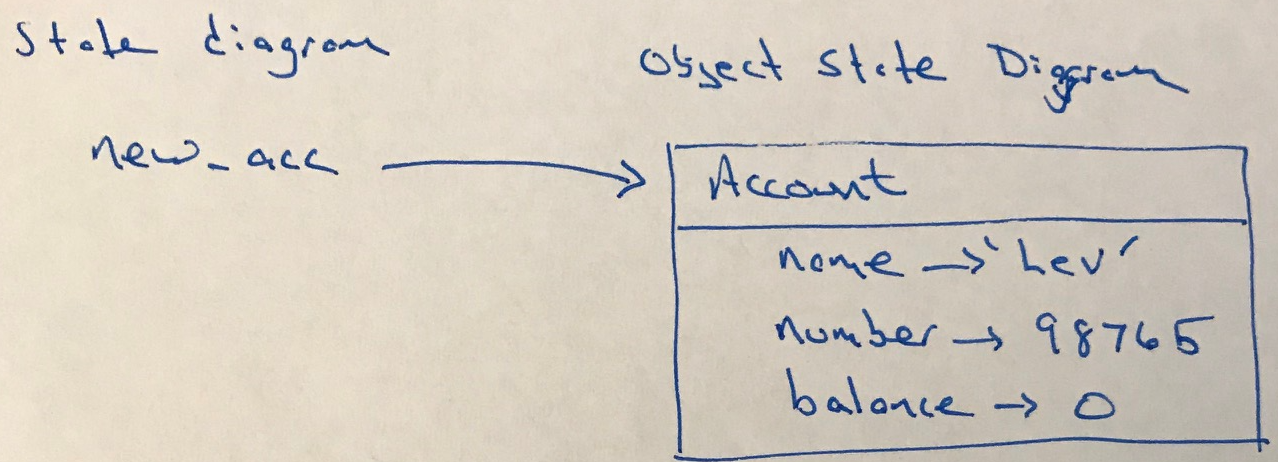 State diagram
Object State Diagram
new_acc →
Account
name → 'Lev'
number → 98765
balance → 0